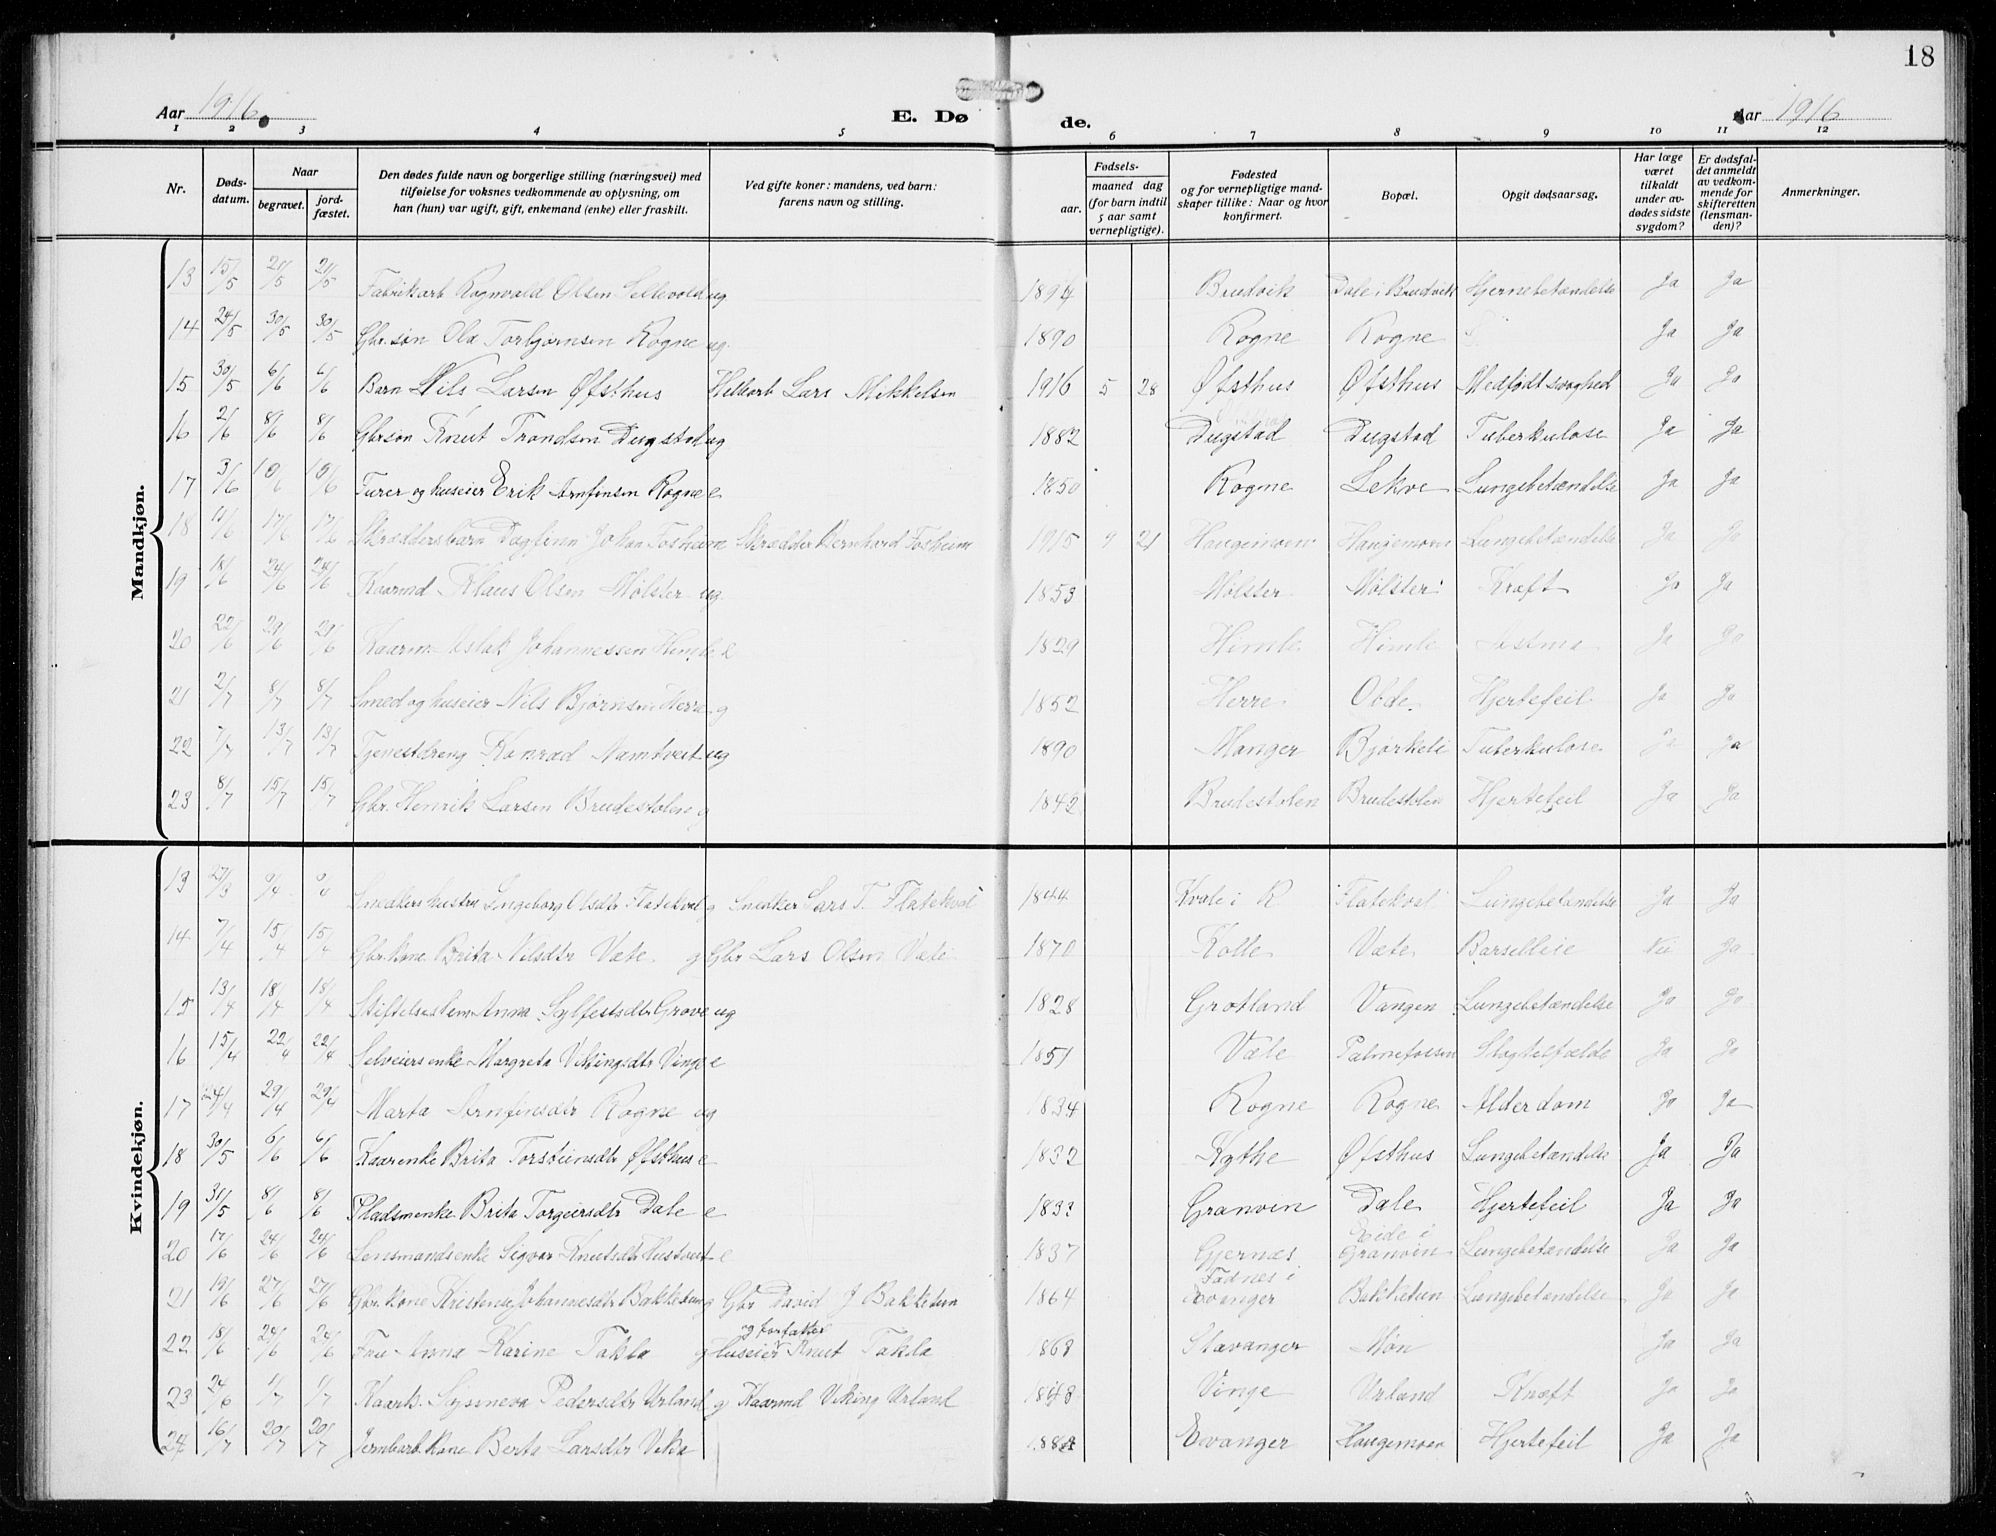 18
Aar 1916. E. Dø de. Aar 1916
1 2 3 4 5 6 7 8 9 10 11 12
Nr. Døds-datum. Naar begravet. jord-fæstet. Den dødes fulde navn og borgerlige stilling (næringsvei) med tilføielse for voksnes vedkommende av oplysning, om han (hun) var ugift, gift, enkemand (enke) eller fraskilt. Ved gifte koner: mandens, ved barn: farens navn og stilling. Fødsels- aar. maaned dag (for barn indtil 5 aar samt vernepligtige). Fødested og for vernepligtige mandskaper tillike: Naar og hvor konfirmert. Bopæl. Opgit dødsaarsag. Har læge været tilkaldt under avdødes sidste sygdom? Er dødsfaldet anmeldt av vedkommende for skifteretten (lensmanden)? Anmerkninger.
Mandkjøn.
13 15/5 21/5 21/5 Fabrikarb Rognvald Olsen Sellevold ug 1894 Bruvik Dale i Bruvik Hjernebetændelse Ja Ja
14 24/5 30/5 30/5 Gbr.søn Ola Torbjørnsen Rogne ug. 1890 Rogne Rogne Ja Ja
15 30/5 6/6 6/6 Barn Nils Larsen Øfsthus Lars Mikkelsen 1916 5 28 Øfsthus Øfsthus Medfødt svaghed Ja Ja
16 2/6 8/6 8/6 Gbrsøn Knut Trondsen Dugstad ug 1882 Dugstad Dugstad Tuberkulose Ja Ja
17 3/6 10/6 10/6 Furer og huseier Erik Arnfinsen Rogne e 1850 Rogne Lekve Lungebetændelse Ja Ja
18 11/6 17/6 17/6 Skræddersbarn Dagfinn Johan Fosheim Skrædder Bernhard Fosheim 1915 9 21 Haugemoen Haugemoen Lungebetændelse Ja Ja
19 18/6 24/6 24/6 Kaarmd Klaus Olsen Mølster ug 1853 Mølster Mølster Kræft Ja Ja
20 22/6 29/6 29/6 Kaarm. Aslak Johannessen Himle e 1829 Himle Himle Astma Ja Ja
21 2/7 8/7 8/7 Smed og huseier Nils Bjørnsen Herre g 1852 Herre Obde. Hjertefeil Ja Ja
22 7/7 13/7 13/7 Tjenestdreng Konrad Namtveit ug 1890 Manger Bjørkeli Tuberkulose Ja Ja
23 8/7 15/7 15/7 Gbr. Henrik Larsen Brudestolen g 1842 Brudestolen Brudestolen Hjertefeil Ja Ja
Kvindekjøn.
13 27/3 /4 /4 Snedkers hustru Ingeborg Olsdtr Flatekval g Snedker Lars T. Flatekval 1844 Kvale i R Flatekval Lungebetændelse Ja Ja
14 7/4 15/4 15/4 Gbr.kone Brita Nilsdtr Væte g Gbr Lars Olsen Væte 1870 Væte Barselleie Nei Ja
15 13/4 18/4 18/4 Stiftelseslem Anna Sylfestsdtr Grove ug 1828 Grotland Vangen Lungebetændelse Ja Ja
16 15/4 22/4 22/4 Selveiers enke Margreta Vikingsdtr Vinge e 1851 Væte Palmefossen Slagtilfælde Ja Ja
17 24/4 29/4 29/4 Marta Arnfinsdtr Rogne ug 1834 Rogne Rogne Alderdom Ja Ja
18 30/5 6/6 6/6 Kaarenke Brita Torsteinsdtr Øfsthus e 1832 Kythe Øfsthus Lungebetændelse Ja Ja
19 31/5 8/6 8/6 Pladsmenke Brita Torgeirsdtr Dale e 1833 Granvin Dale Hjertefeil Ja Ja
20 17/6 24/6 24/6 Lensmandsenke Sigvor Knutsdtr Hustveit e 1837 Gjernæs Eide i Granvin Lungebetændelse Ja Ja
21 19/6 27/6 27/6 Gbr.kone Kristense Johannesdtr Bakketun g Gbr David J Bakketun 1864 Fadnes i Evanger Bakketun Lungebetændelse Ja Ja
22 18/6 24/6 24/6 Fru Anna Karine Takla g Huseier og forfatter Knut Takla 1868 Stavanger Møn Ja Ja
23 24/6 1/7 1/7 Kaark. Synneva Pedersdtr Urland g Kaarmd Viking Urland 1848 Vinge Urland Kræft Ja Ja
24 16/7 20/7 20/7 Jernbarb kone Berta Larsdtr Veka Evanger Haugemoen Hjertefeil Ja Ja